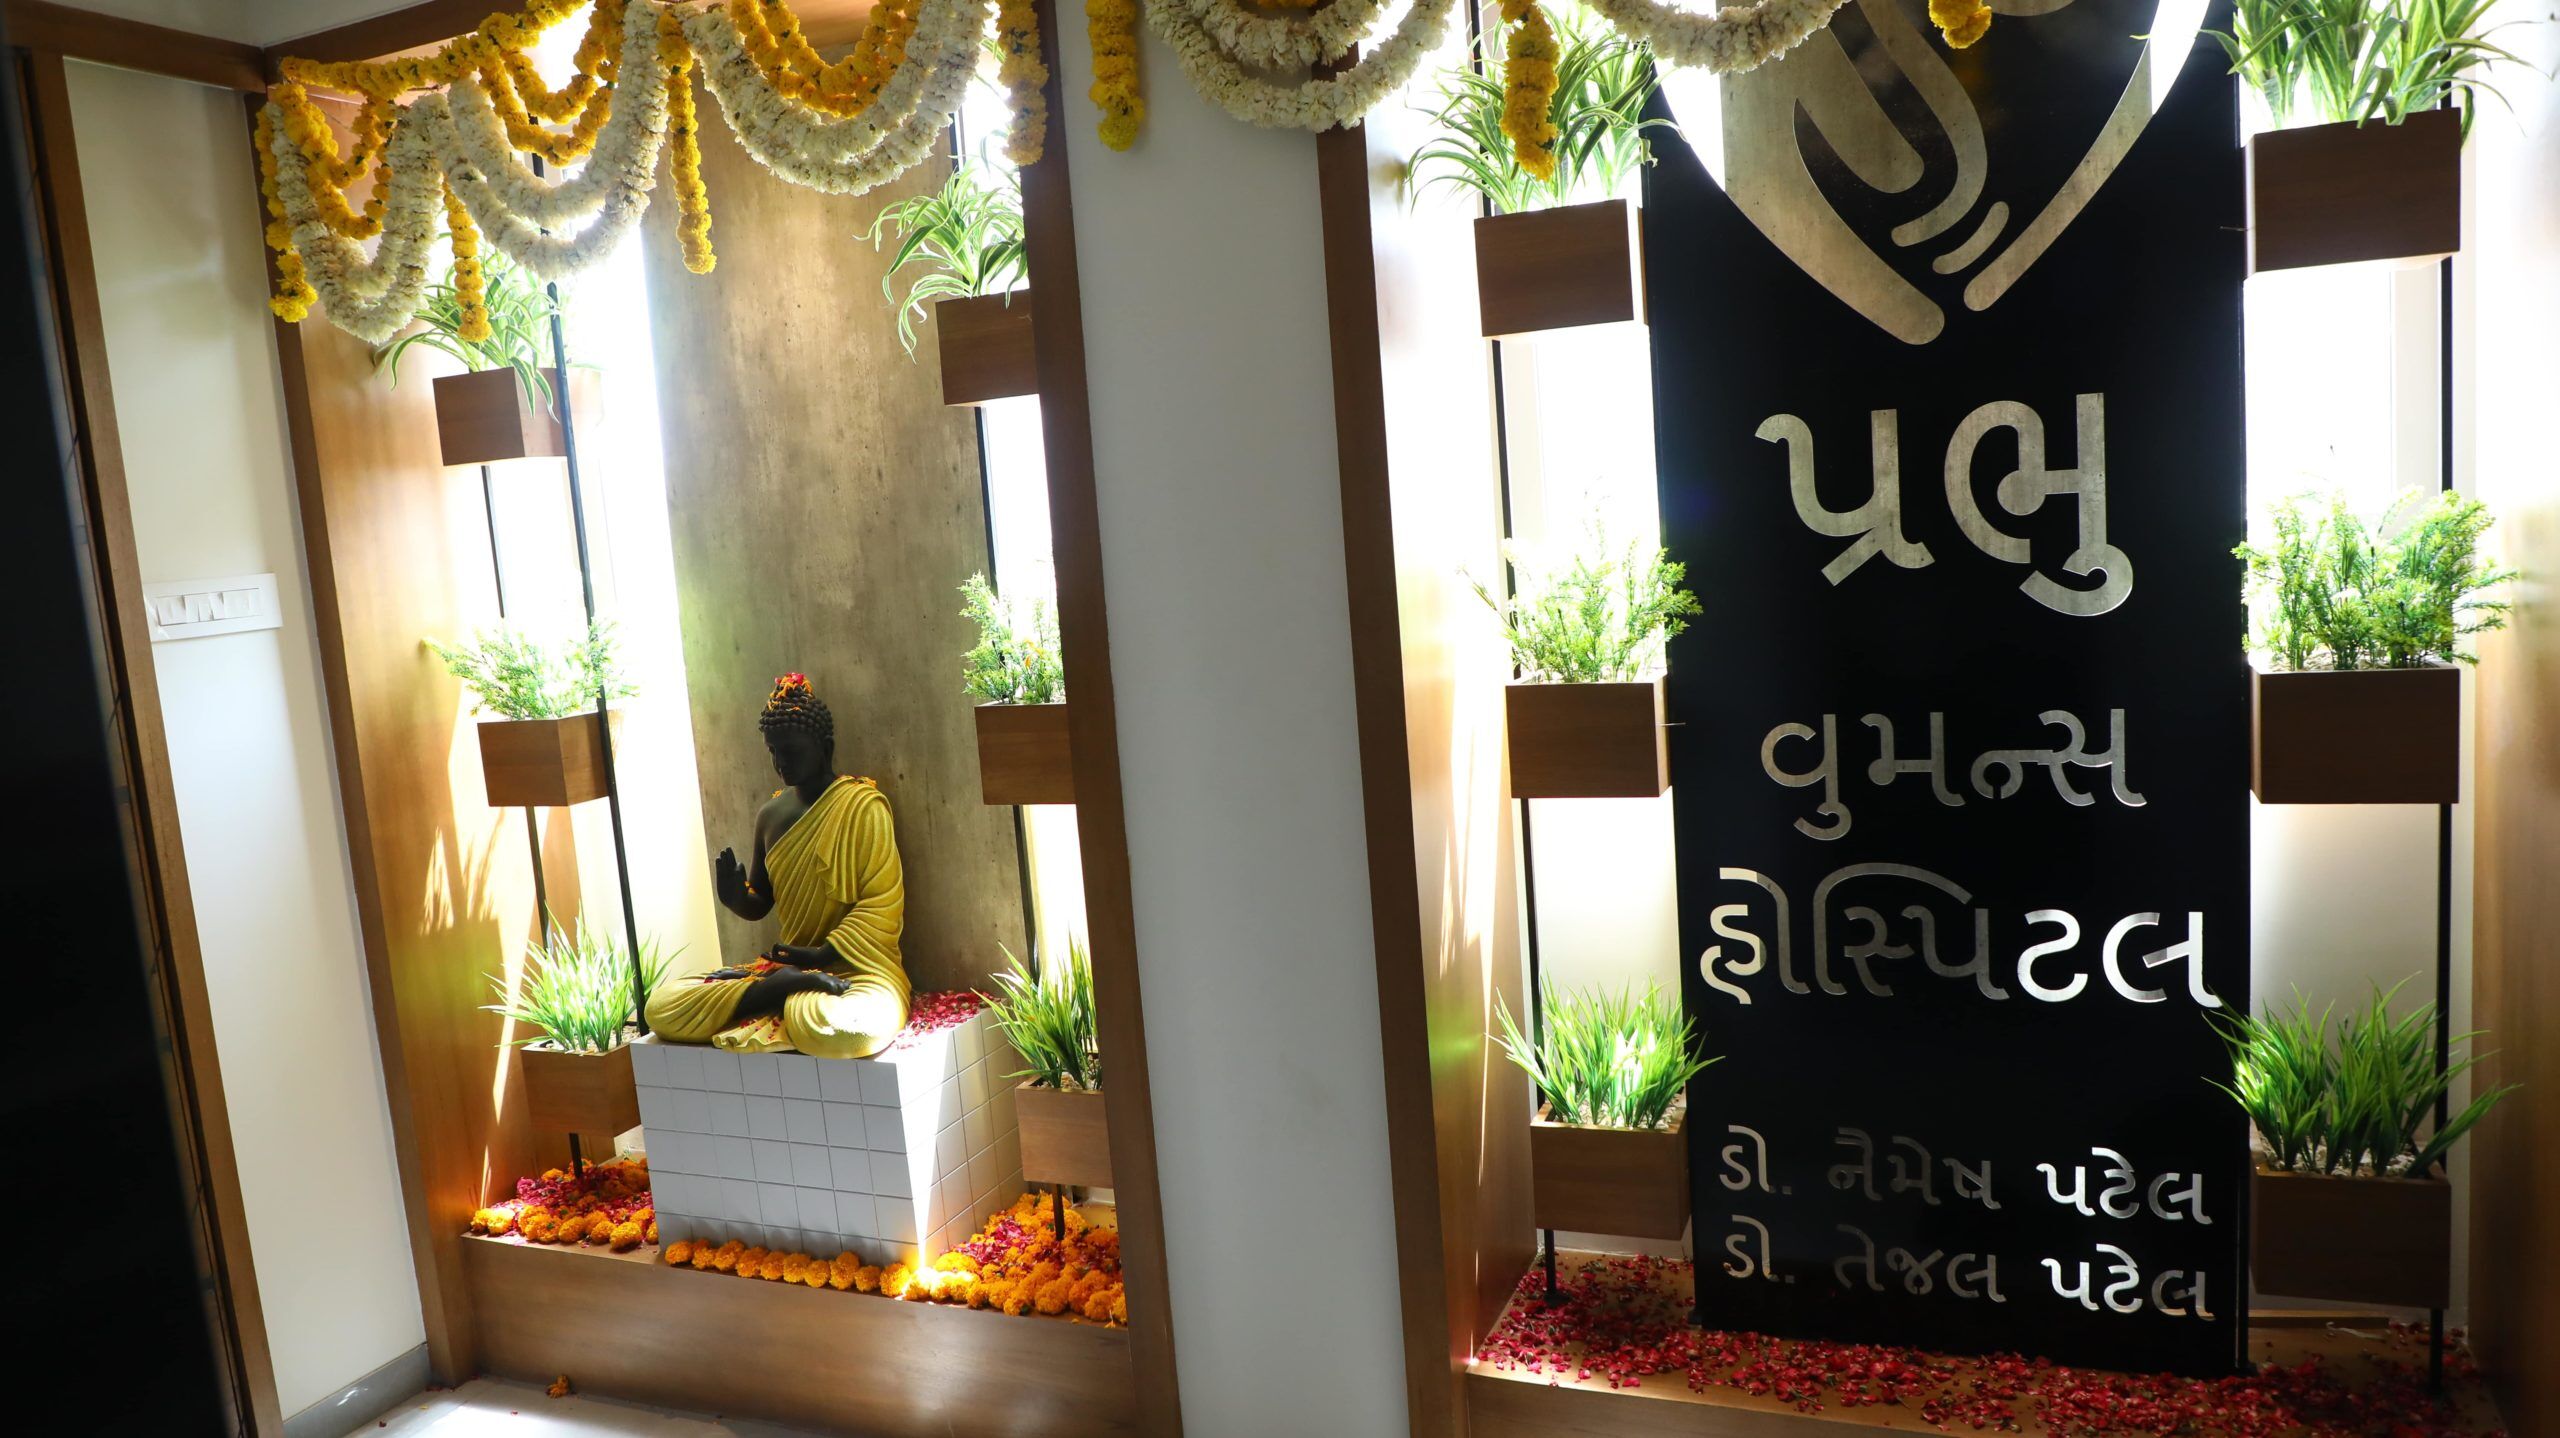 પ્રભુ
વુમન્સ
હોસ્પિટલ
ડો. નૈમેષ પટેલ
ડો. તેજલ પટેલ